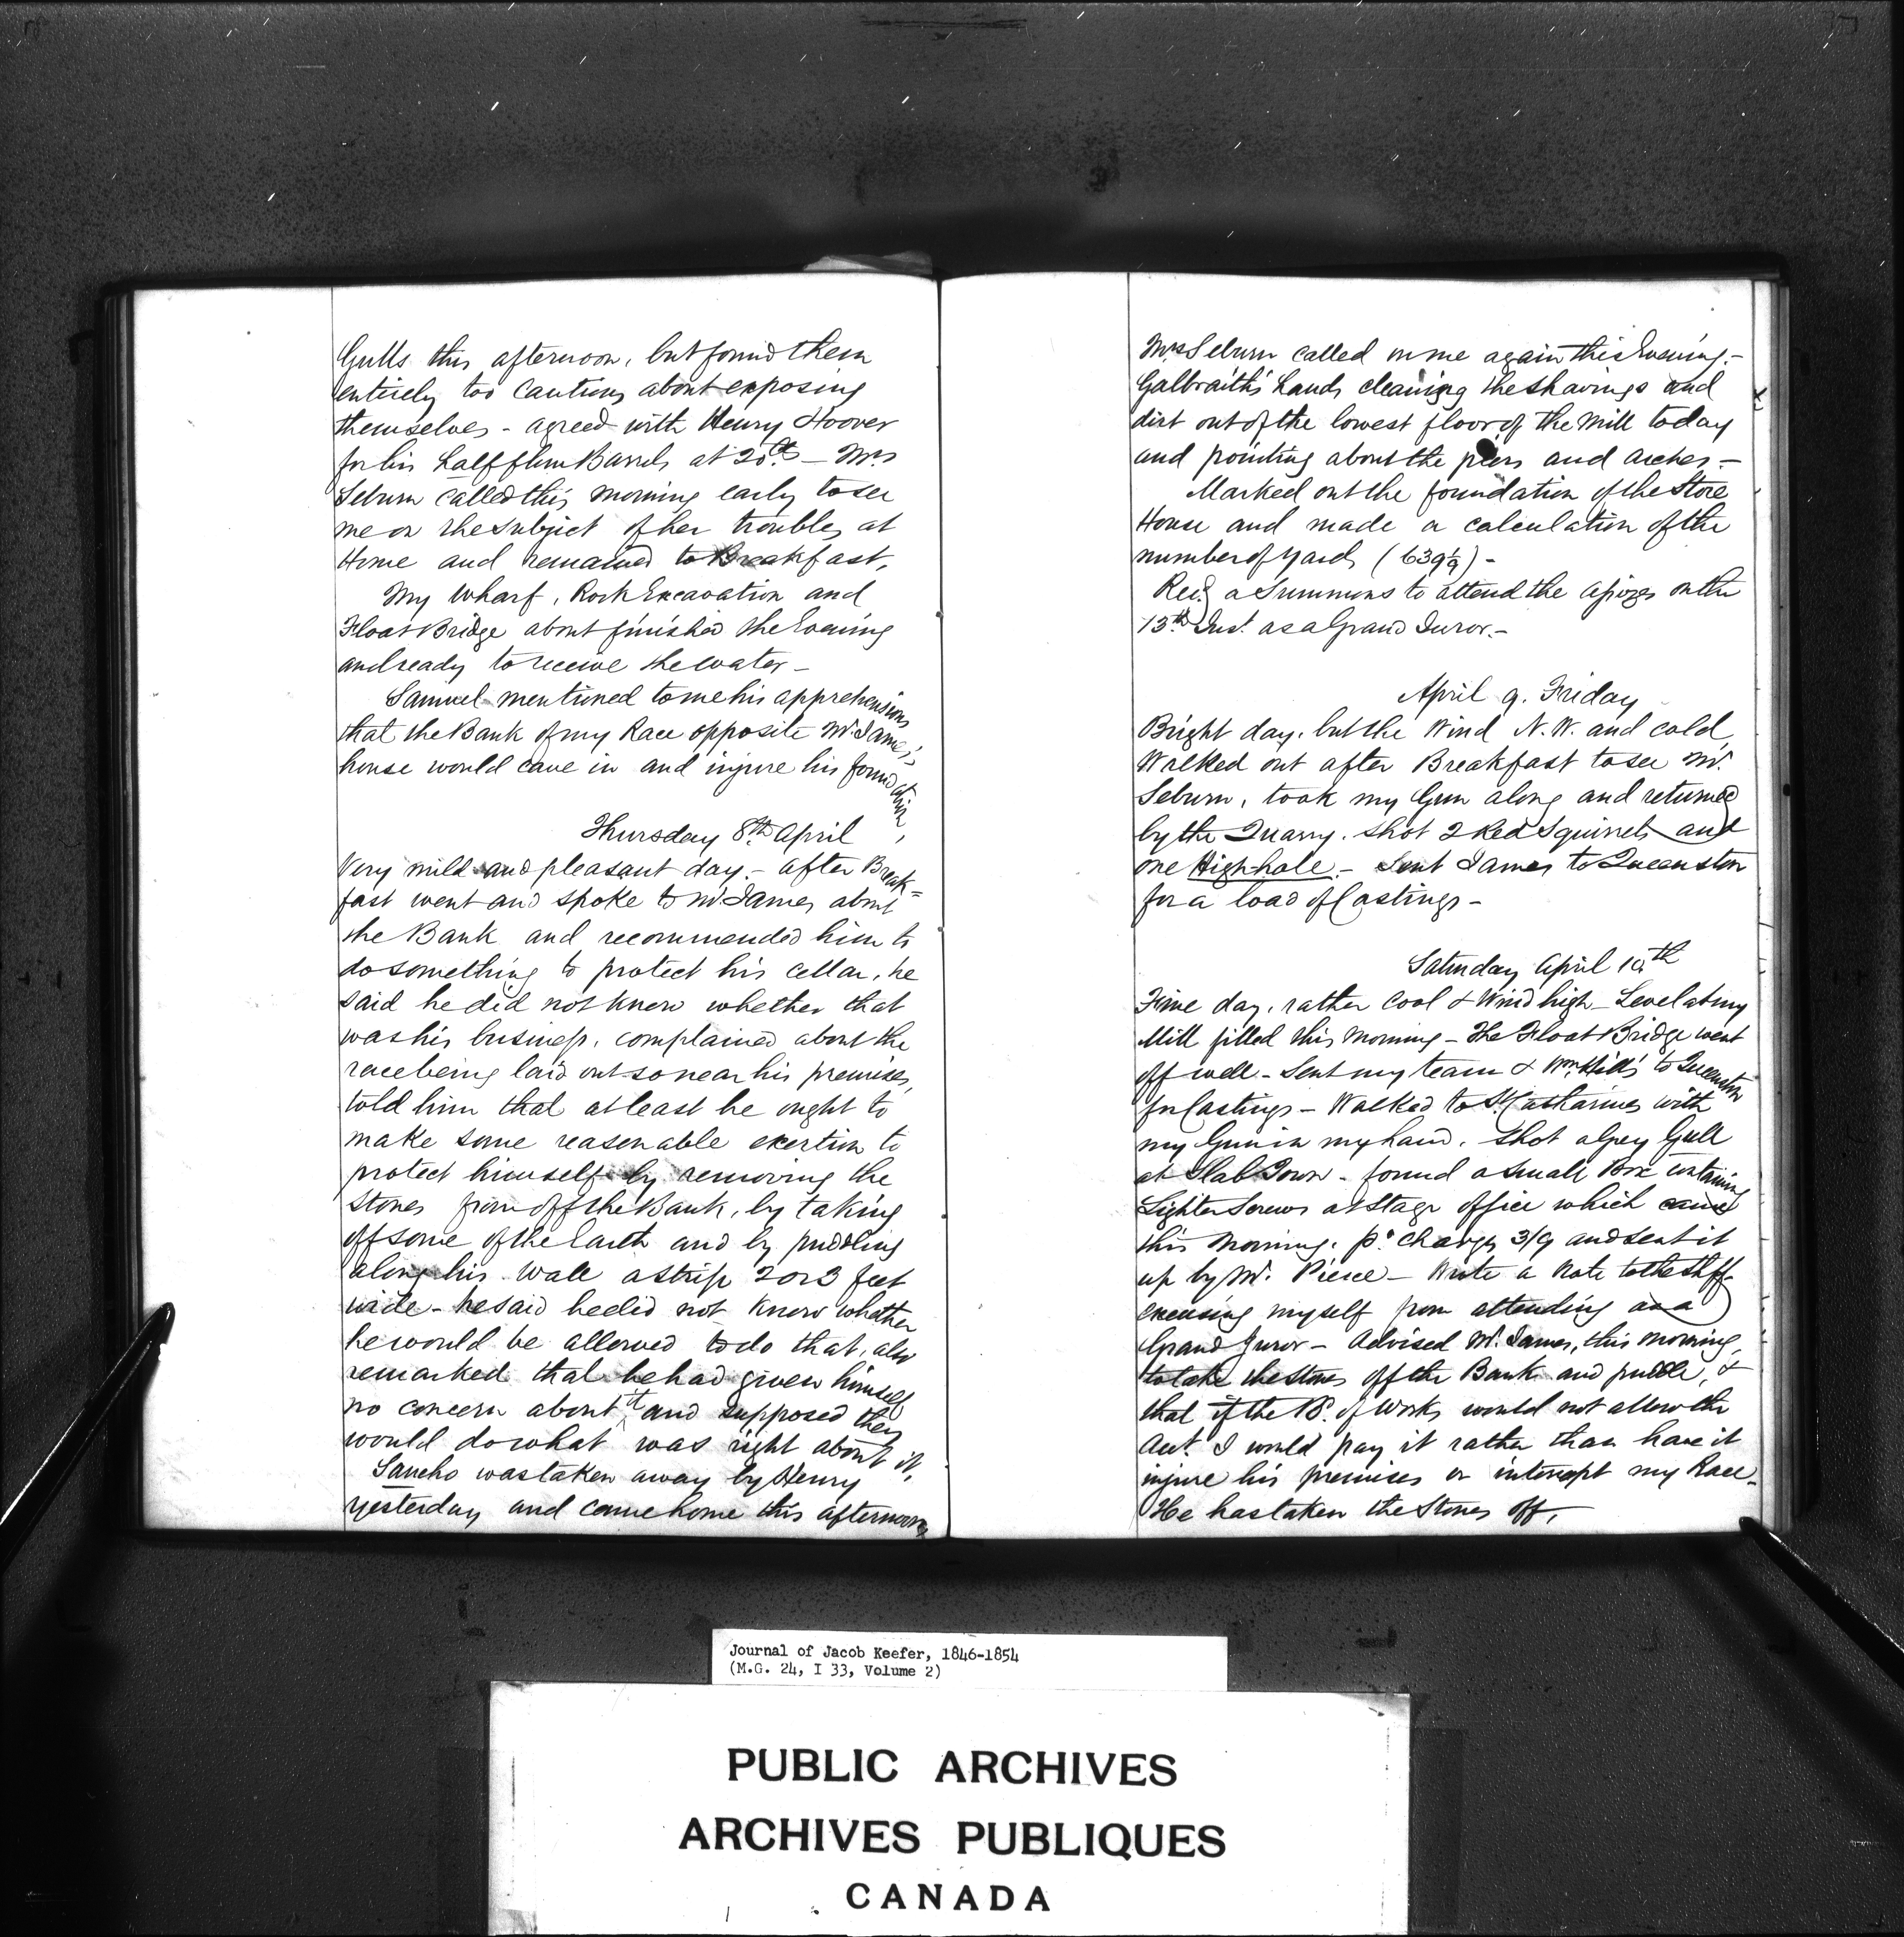 Gulls this afternoon, but found them
entirely too cautious about exposing
themselves - agreed with Henry Hoover
for his half flour Barrels at 20cts - Mrs
Seburn called this morning early to see
me on the subject of her troubles at
Home and remained to Breakfast,
My Wharf, Rock Excavation and
Float Bridge about finished the Evening
and ready to receive the water -
Samuel mentioned to me his apprehensions
that the Bank of my Race opposite Mr. James'
house would cave in and injure his foundation,
Thursday 8th April
Very mild and pleasant day. - after Break=
fast went and spoke to Mr. James about
the Bank and recommended him to
do something to protect his cellar, he
said he did not know whether that
was his business, complained about the
race being laid out so near his premises,
told him that at least he ought to
make some reasonable exertion to
protect himself by removing the
Stones from off the Bank, by taking
off some of the Earth and by puddling
along his wall a strip 2 or 3 feet
wide - he said he did not know whether
he would be allowed to do that, also
remarked that he had given himself
no concern about it and supposed they
would do what was right about it,
Sancho was taken away by Henry
yesterday and came home this afternoon
Mrs Seburn called on me again this Evening. -
Galbraith's hands cleaning the shavings and
dirt out of the lowest floor of the Mill today
and pointing about the piers and arches. -
Marked out the foundation of the Store
House and made a calculation of the
number of yards (639 1/9) -
Recd. a Summons to attend the Assizes on the
13th Inst. as a Grand Juror. -
April 9. Friday
Bright day, but the Wind N.W. and cold
Walked out after Breakfast to see Mr.
Seburn, took my Gun along and returned
by the Quarry. Shot 2 Red Squirrels and
one High-hole. - Sent James to Queenston
for a load of Castings -
Saturday April 10th
Fine day, rather cool & Wind high - Level at my
Mill filled this Morning - The Float Bridge went
off well - Sent my team & Wm. Hill's to Queenston
for Castings - Walked to St. Catharines with
my Gun in my hand. Shot a Grey Gull
at Slab Town - found a small Box containing
Lighter Screws at Stage office which came
this Morning. pd. Charges 3/9 and sent it
up by Mr. Pierce - Wrote a Note to the Shff.
excusing myself from attending as a
Grand Juror - Advised Mr. James, this morning,
to take the stones off the Bank and puddle, &
that if the B. of Works would not allow the
Act. I would pay it rather than have it
injure his premises or interrupt my Race -
He has taken the Stones off,
Journal of Jacob Keefer, 1846-1854
(M.G. 24, I 33, Volume 2)
PUBLIC ARCHIVES
ARCHIVES PUBLIQUES
CANADA